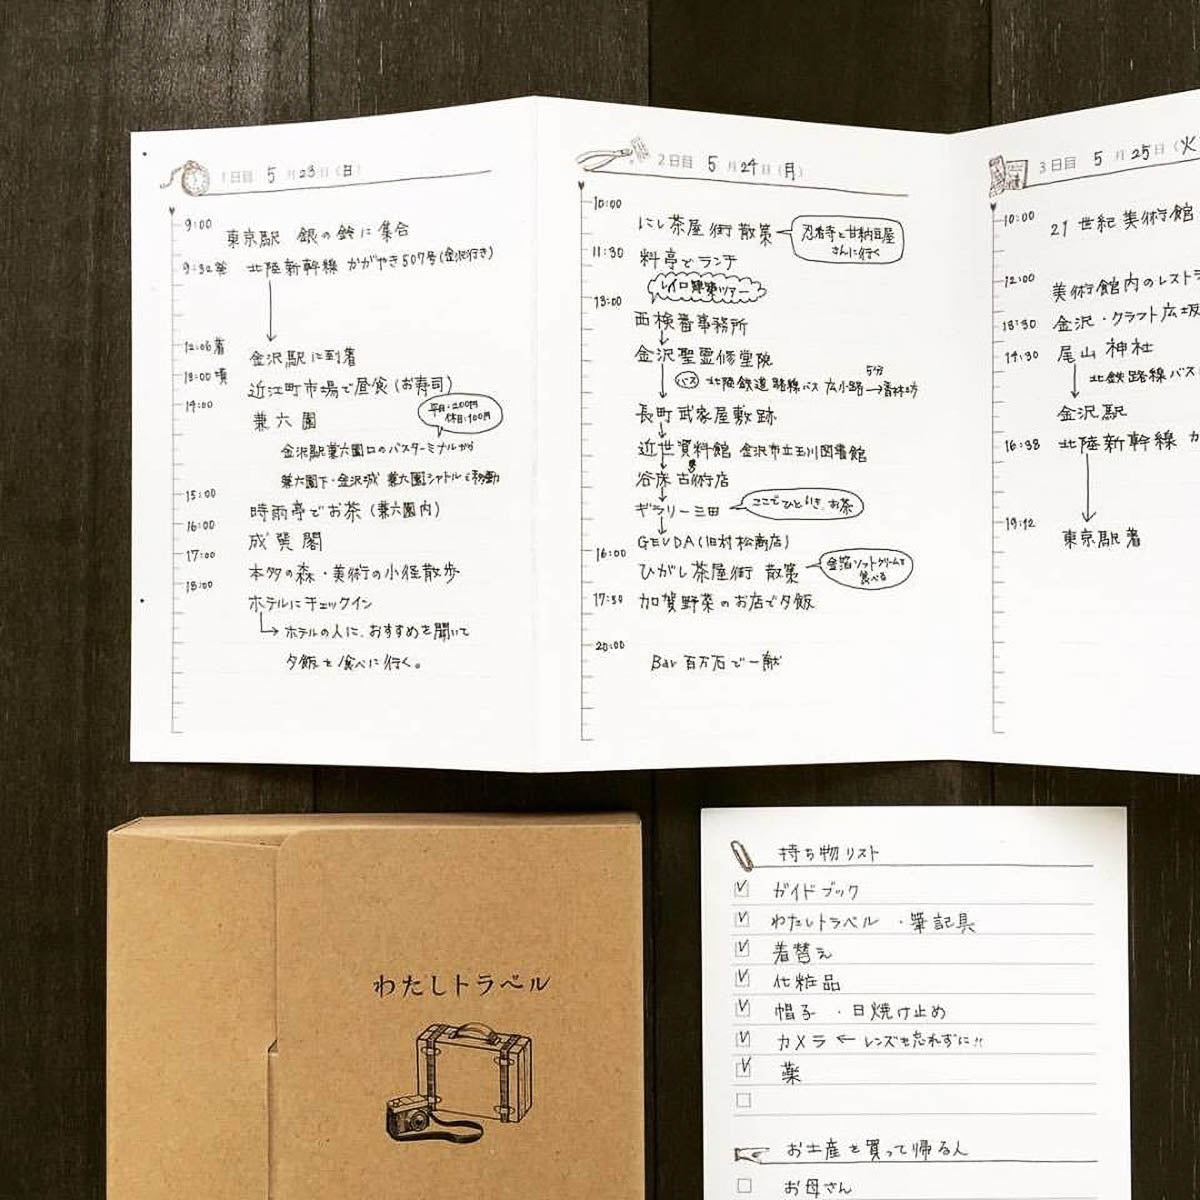 1日目 5月23日(日)
9:00
東京駅 銀の鈴に集合
9:32発 北陸新幹線 かがやき507号(金沢行き)
12:06着 金沢駅に到着
13:00頃 近江町市場で昼食(お寿司)
14:00 兼六園
平日:200円
休日:100円
金沢駅兼六園口のバスターミナルから
兼六園下・金沢城 兼六園シャトルで移動
15:00 時雨亭でお茶(兼六園内)
16:00 成巽閣
17:00 本多の森・美術の小径散歩
18:00 ホテルにチェックイン
ホテルの人に、おすすめを聞いて
夕飯を食べに行く。
2日目 5月24日(月)
10:00 にし茶屋街散策
忍者寺と甘納豆屋
さんに行く
11:30 料亭でランチ
レイロ建築ツアー
13:00 西検番事務所
金沢聖霊修道院
バス 北陸鉄道路線バス 広小路→香林坊
5分
長町武家屋敷跡
近世資料館 金沢市立玉川図書館
谷床古美術店
ギャラリー三田
ここでひといき。お茶
GEVDA(旧村松商店)
16:00 ひがし茶屋街 散策
金箔ソフトクリームを
食べる
17:30 加賀野菜のお店で夕飯
20:00
Bar 百万石で一献
3日目 5月25日(火
10:00 21世紀美術館
12:00 美術館内のレストラ
13:30 金沢・クラフト広坂
14:30 尾山神社
北鉄路線バス
金沢駅
16:38 北陸新幹線 か
19:12 東京駅着
わたしトラベル
持ち物リスト
ガイドブック
わたしトラベル ・筆記具
着替え
化粧品
帽子 ・日焼け止め
カメラ ← レンズを忘れずに!!
薬
お土産を買って帰る人
お母さん